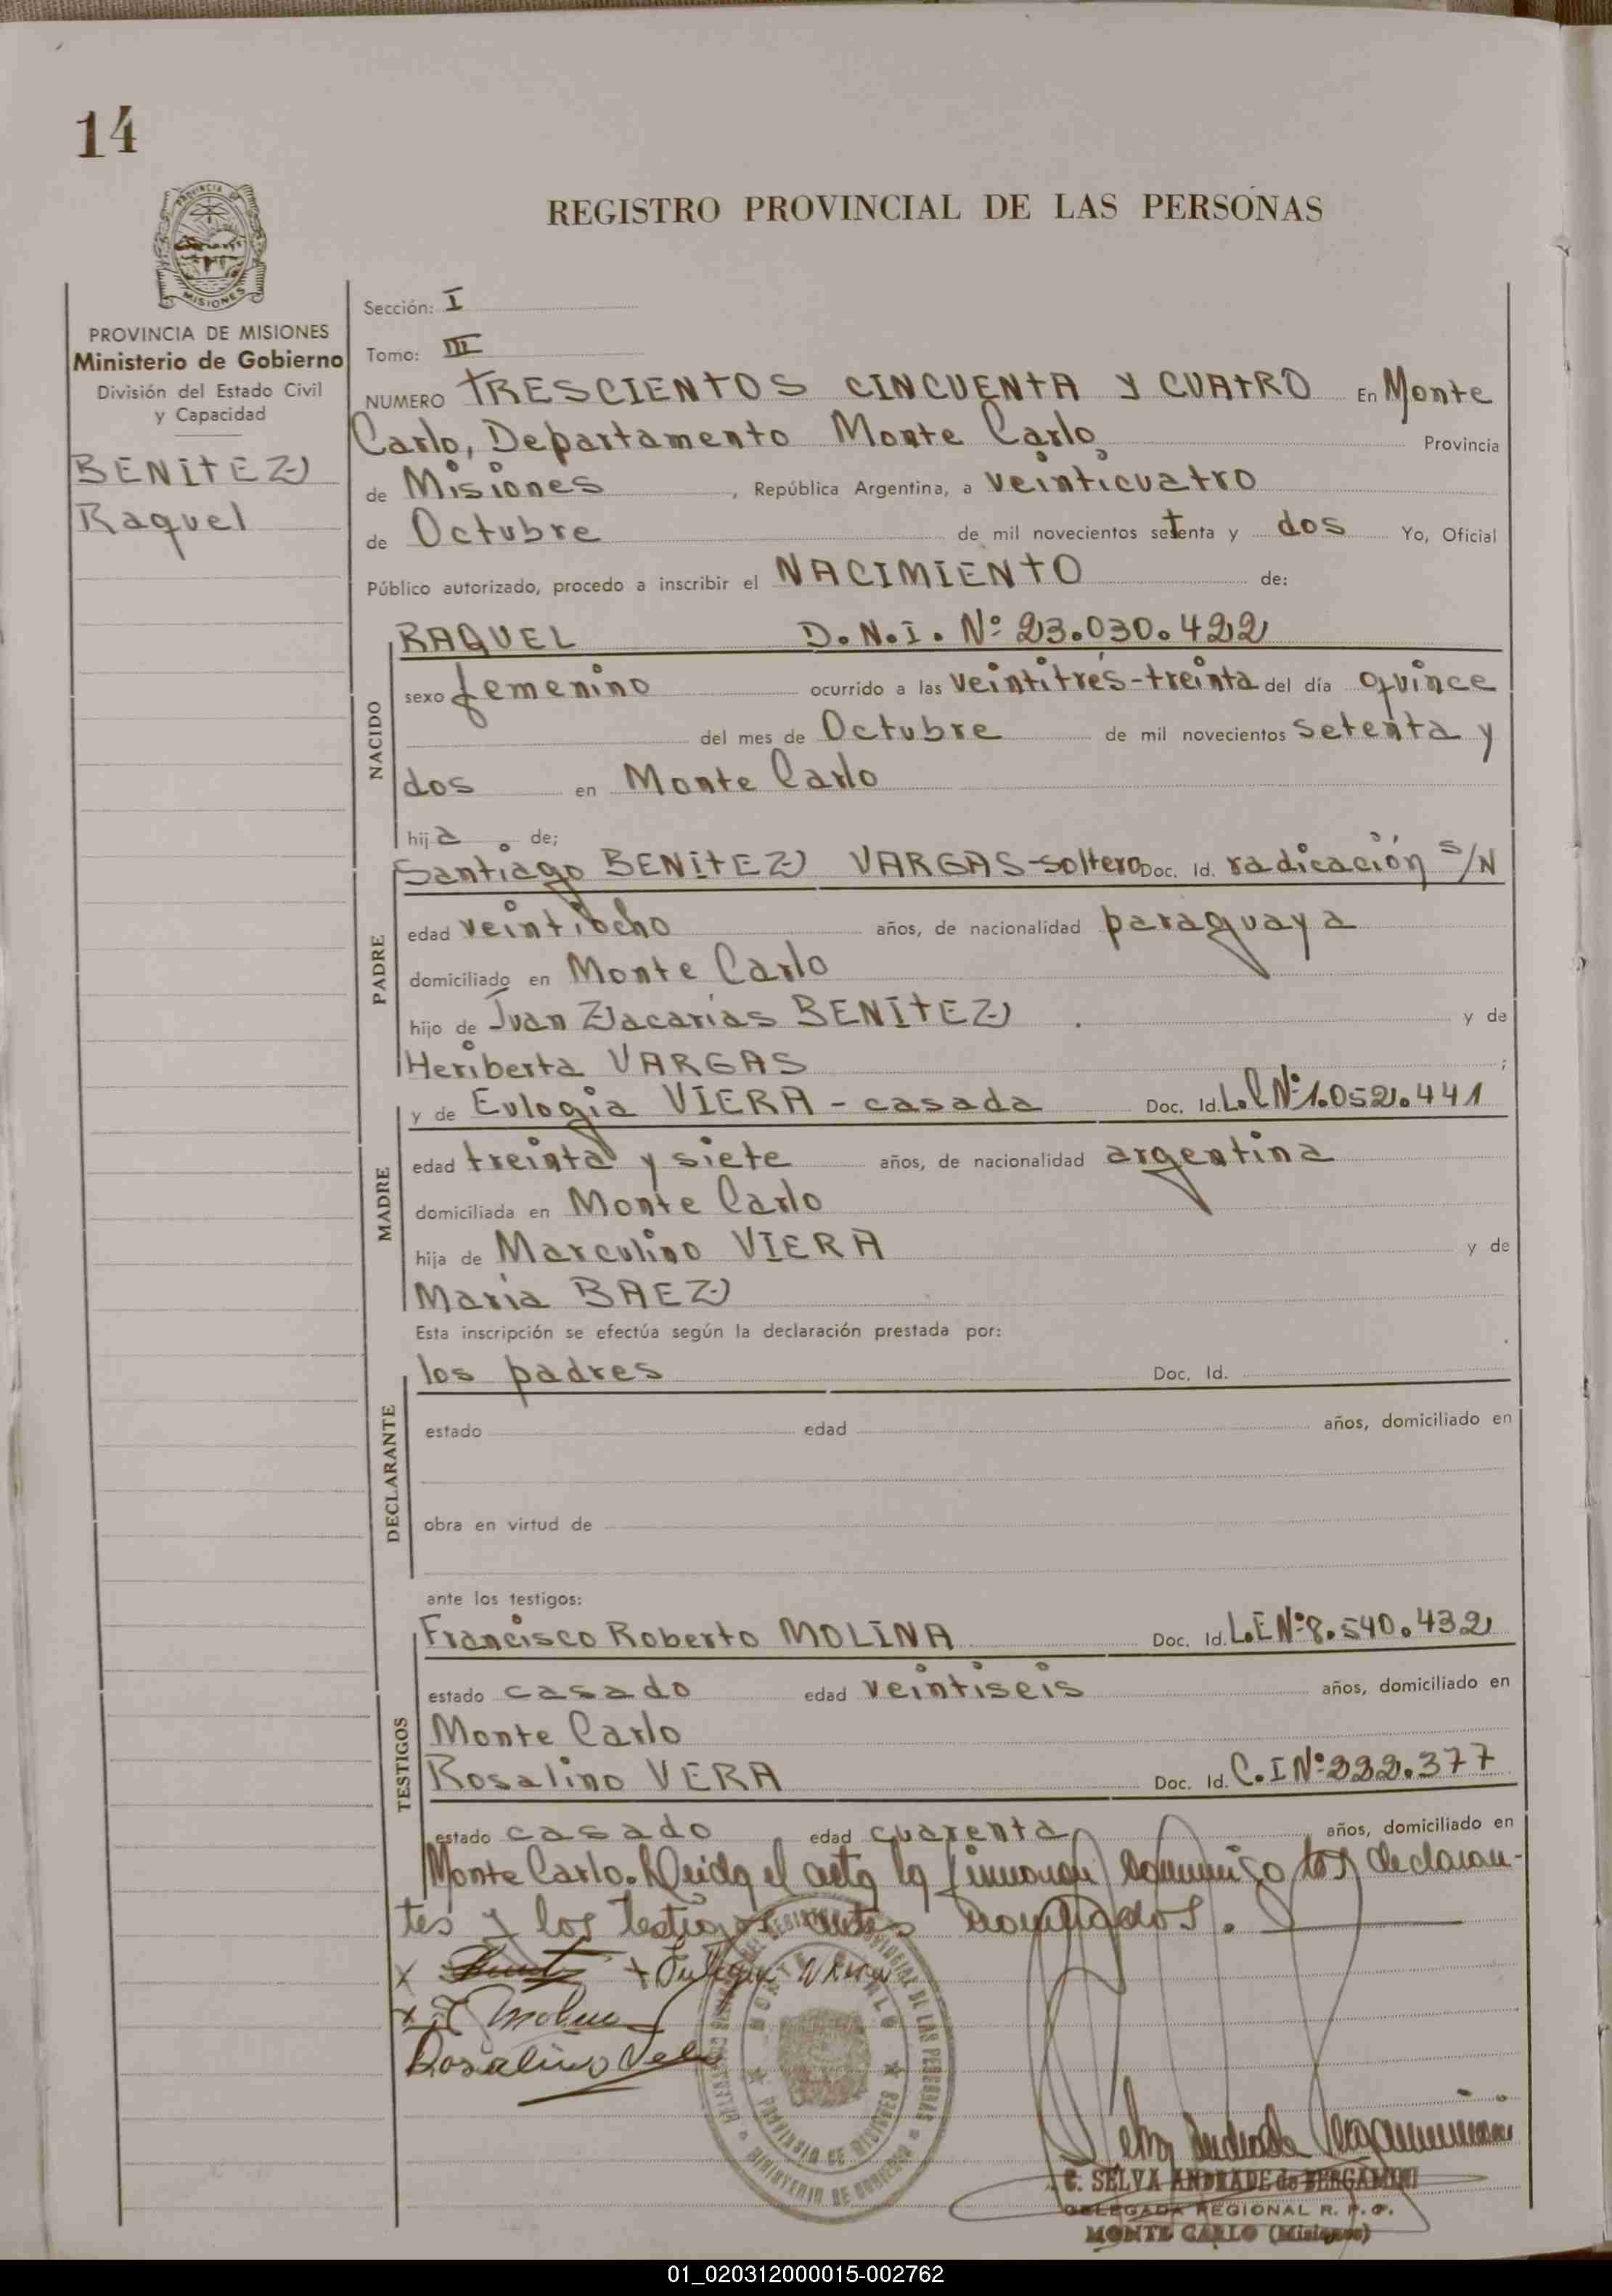 14
PROVINCIA DE
MISIONES
REGISTRO PROVINCIAL DE LAS PERSONAS
PROVINCIA DE MISIONES
Ministerio de Gobierno
División del Estado Civil
y Capacidad
BENITEZ
Raquel
Sección: I
Tomo: III
NUMERO TRESCIENTOS CINCUENTA Y CUATRO En Monte
Carlo, Departamento Monte Carlo Provincia
de Misiones, República Argentina, a veinticuatro
de Octubre de mil novecientos setenta y dos Yo, Oficial
Público autorizado, procedo a inscribir el NACIMIENTO de:
NACIDO
RAQUEL D.N.I. Nº 23.030.422
sexo femenino ocurrido a las veintitrés-treinta del día quince
del mes de Octubre de mil novecientos setenta y
dos en Monte Carlo
hija de;
PADRE
Santiago BENITEZ VARGAS-soltero Doc. Id. radicación s/N
edad veintiocho años, de nacionalidad paraguaya
domiciliado en Monte Carlo
hijo de Juan Zacarías BENITEZ y de
Heriberta VARGAS;
MADRE
y de Eulogia VIERA - casada Doc. Id. L.C Nº 1.052.441
edad treinta y siete años, de nacionalidad argentina
domiciliada en Monte Carlo
hija de Marculino VIERA y de
María BAEZ
Esta inscripción se efectúa según la declaración prestada por:
DECLARANTE
los padres Doc. Id.
estado edad años, domiciliado en
obra en virtud de
ante los testigos:
TESTIGOS
Francisco Roberto MOLINA Doc. Id. L.E Nº 8.540.432
estado casado edad veintiseis años, domiciliado en
Monte Carlo
Rosalino VERA Doc. Id. C.I Nº 332.377
estado casado edad cuarenta años, domiciliado en
Monte Carlo. Leída el acta la firmaron conmigo los declaran-
tes y los testigos antes nombrados.
Rosalino
MONTE CARLO
PROVINCIA DE MISIONES
MINISTERIO DE GOBIERNO
C. SELVA ANDRADE de BERGAMINI
DELEGADA REGIONAL R. P. P.
MONTE CARLO (Misiones)
01_020312000015-002762